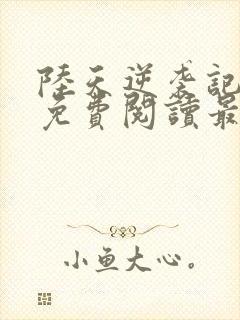 陸天逆袭記
免費閱讀最
小鱼大心。